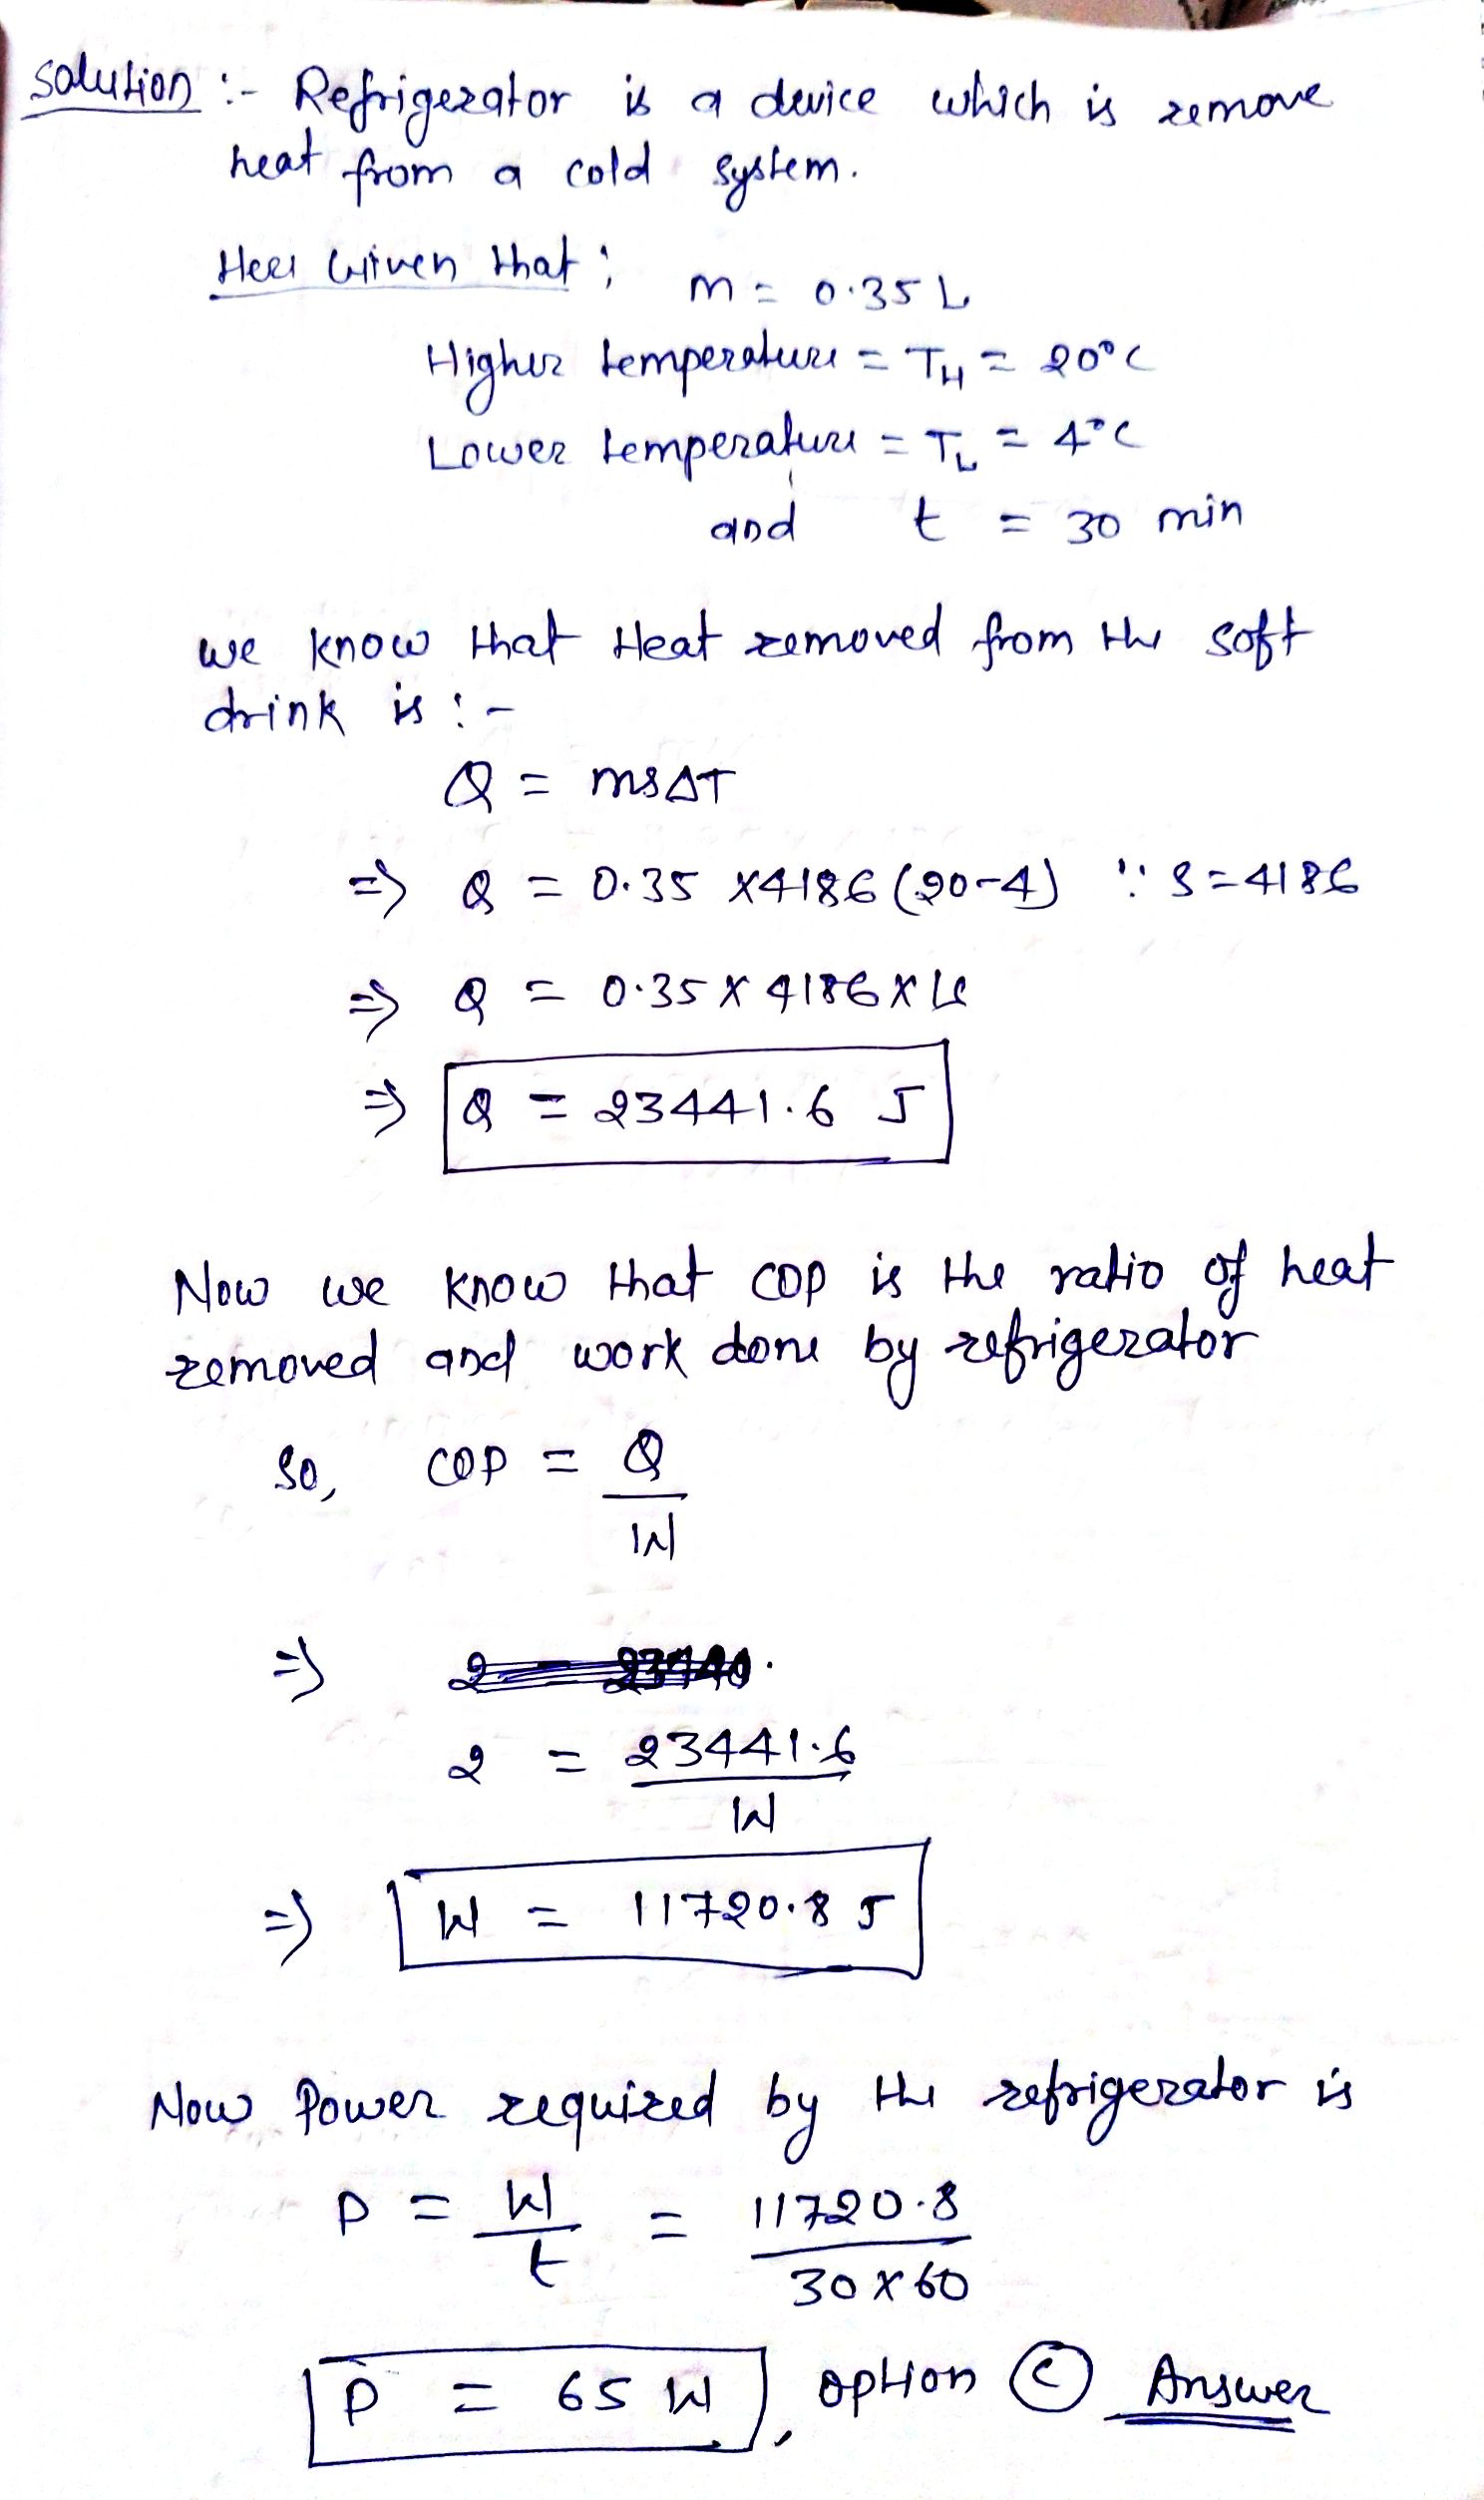 Solution :- Refrigerator is a device which is remove
heat from a cold system.
Heer Given that ; m = 0.35 L
Higher temperature = T_H = 20°C
Lower temperature = T_L = 4°C
and t = 30 min
we know that Heat removed from the soft
drink is :-
Q = msΔT
=> Q = 0.35 x4186 (20-4) ∵ s = 4186
=> Q = 0.35 x 4186 x 16
=> Q = 23441.6 J
Now we know that COP is the ratio of heat
removed and work done by refrigerator
so, COP = Q
W
=>
2 = 23441.6
W
=> W = 11720.8 J
Now Power required by the refrigerator is
P = W = 11720.8
t 30 x 60
P = 65 W , option (C) Answer